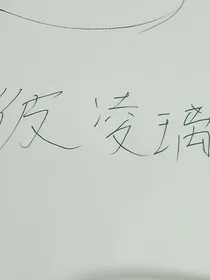 彼凌璃